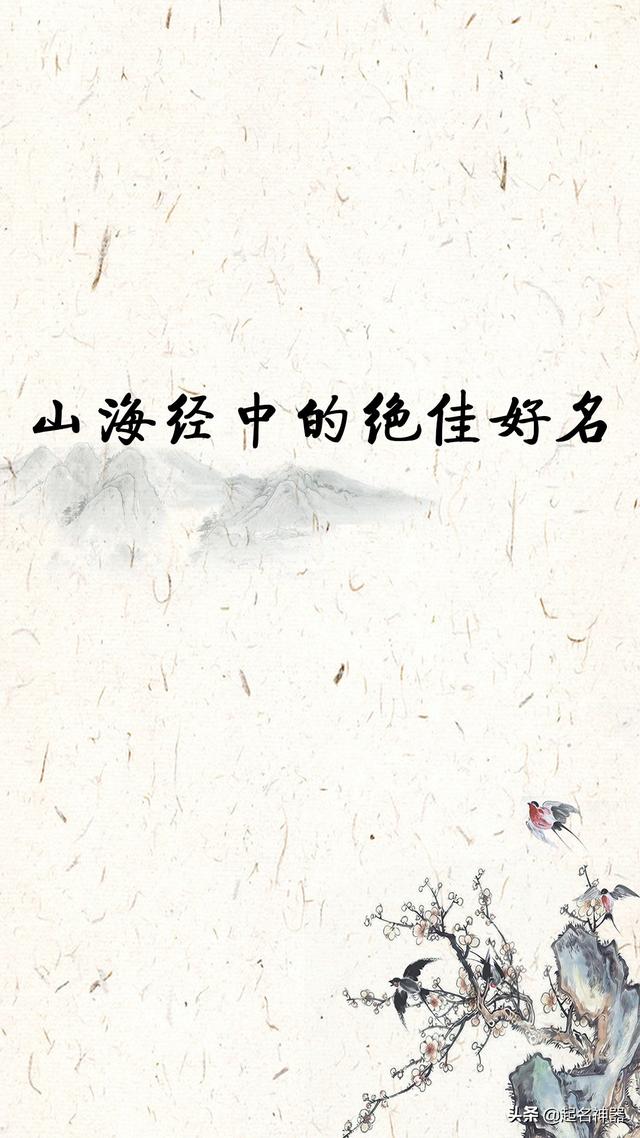 山海经中的绝佳好名
头条 @起名神器